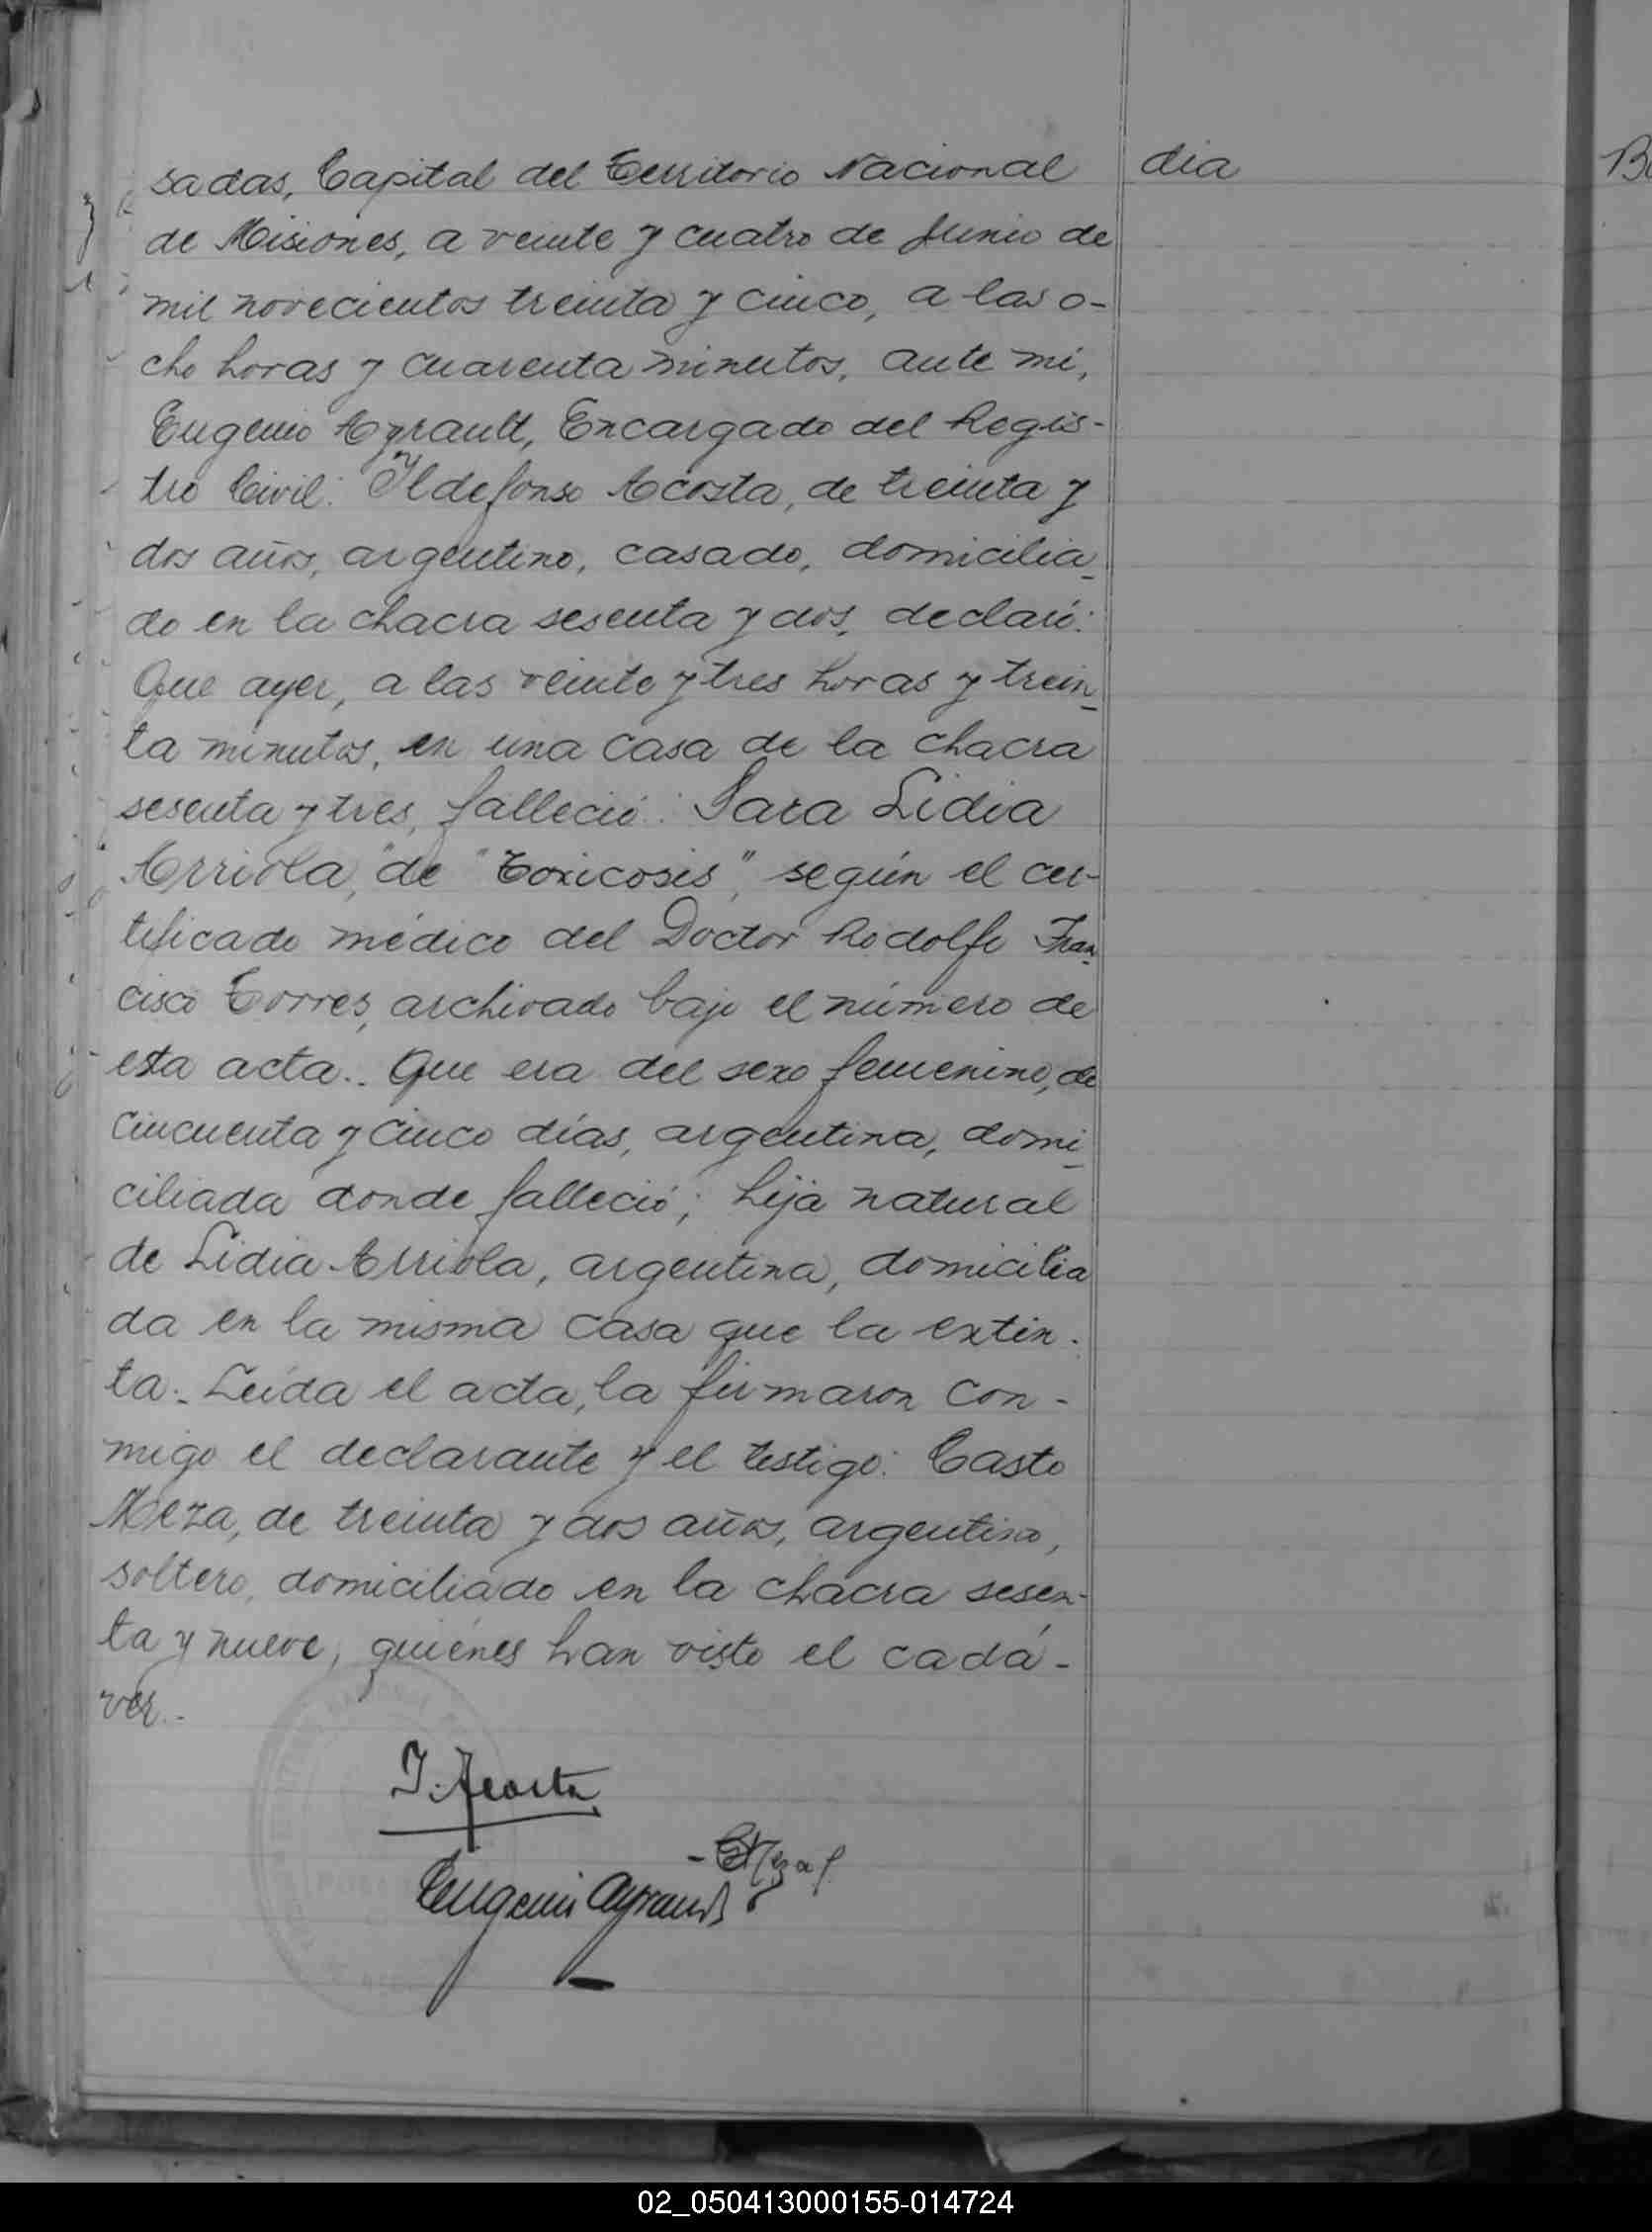 sadas, Capital del Territorio Nacional
dia
de Misiones, a veinte y cuatro de Junio de
mil novecientos treinta y cinco, a las o-
cho horas y cuarenta minutos, ante mi,
Eugenio Ayrault, Encargado del Regis-
tro Civil: Ildefonso Acosta, de treinta y
dos años, argentino, casado, domicilia_
do en la chacra sesenta y dos, declaró:
Que ayer, a las veinte y tres horas y trein_
ta minutos, en una casa de la chacra
sesenta y tres, falleció: Sara Lidia
Arriola, "de "Toxicosis", según el cer-
tificado médico del Doctor Rodolfo Fran_
cisco Torres, archivado bajo el número de
esta acta.. Que era del sexo femenino, de
cincuenta y cinco días, argentina, domi_
ciliada donde falleció; hija natural
de Lidia Arriola, argentina, domicilia
da en la misma casa que la extin-
ta.- Leída el acta, la firmaron con-
migo el declarante y el testigo: Casto
Meza, de treinta y dos años, argentino,
soltero, domiciliado en la chacra sesen-
ta y nueve, quiénes han visto el cadá-
ver.-
I. Acosta
Eugenio Ayrault
02_050413000155-014724